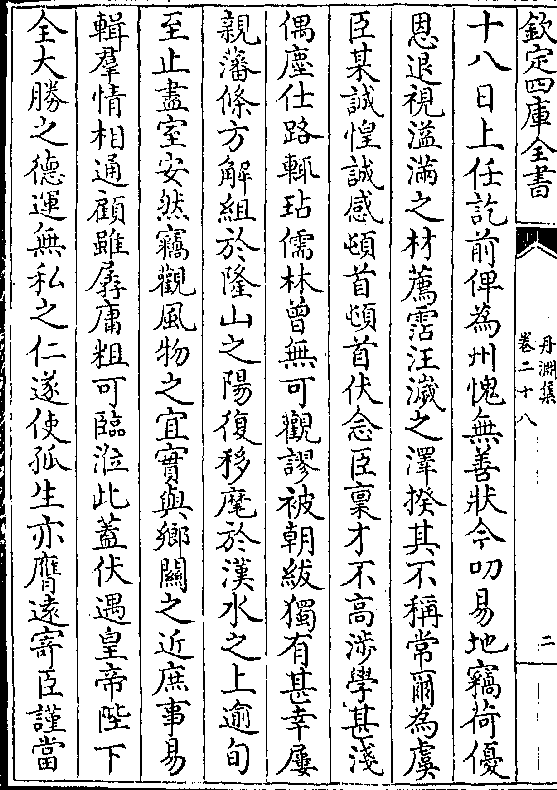 欽定四庫全書
丹淵集
卷二十八
二
十八日上任訖前俾為州愧無善狀今叨易地竊荷優
恩退視溢滿之材薦霑汪濊之澤揆其不稱常爾為虞
臣某誠惶誠感頓首頓首伏念臣稟才不高涉學甚淺
偶塵仕路輒玷儒林曾無可觀謬被朝紱獨有甚幸屢
親藩條方解組於隆山之陽復移麾於漢水之上逾旬
至止盡室安然竊觀風物之宜實與鄉關之近庶事易
輯羣情相通顧雖孱庸粗可臨涖此蓋伏遇皇帝陛下
全大勝之德運無私之仁遂使孤生亦膺遠寄臣謹當